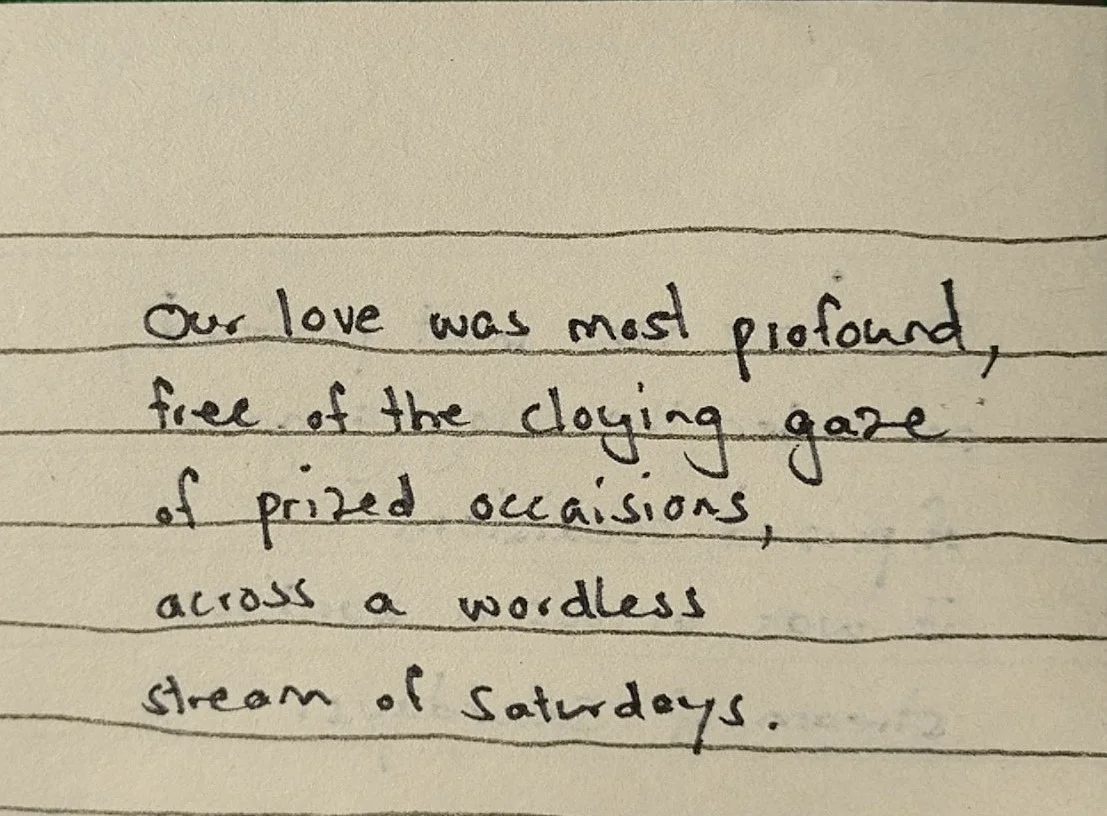 Our love was most profound,
free of the cloying gaze
of prized occaisions,
across a wordless
stream of Saturdays.